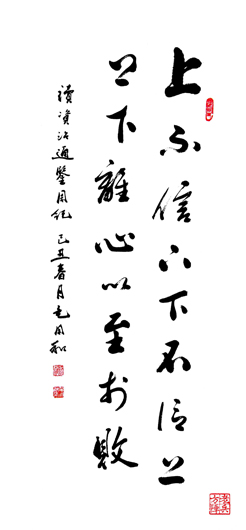 上不信下下不信上
上下離心以至於敗
讀資治通鑒周紀 己丑春月毛周和